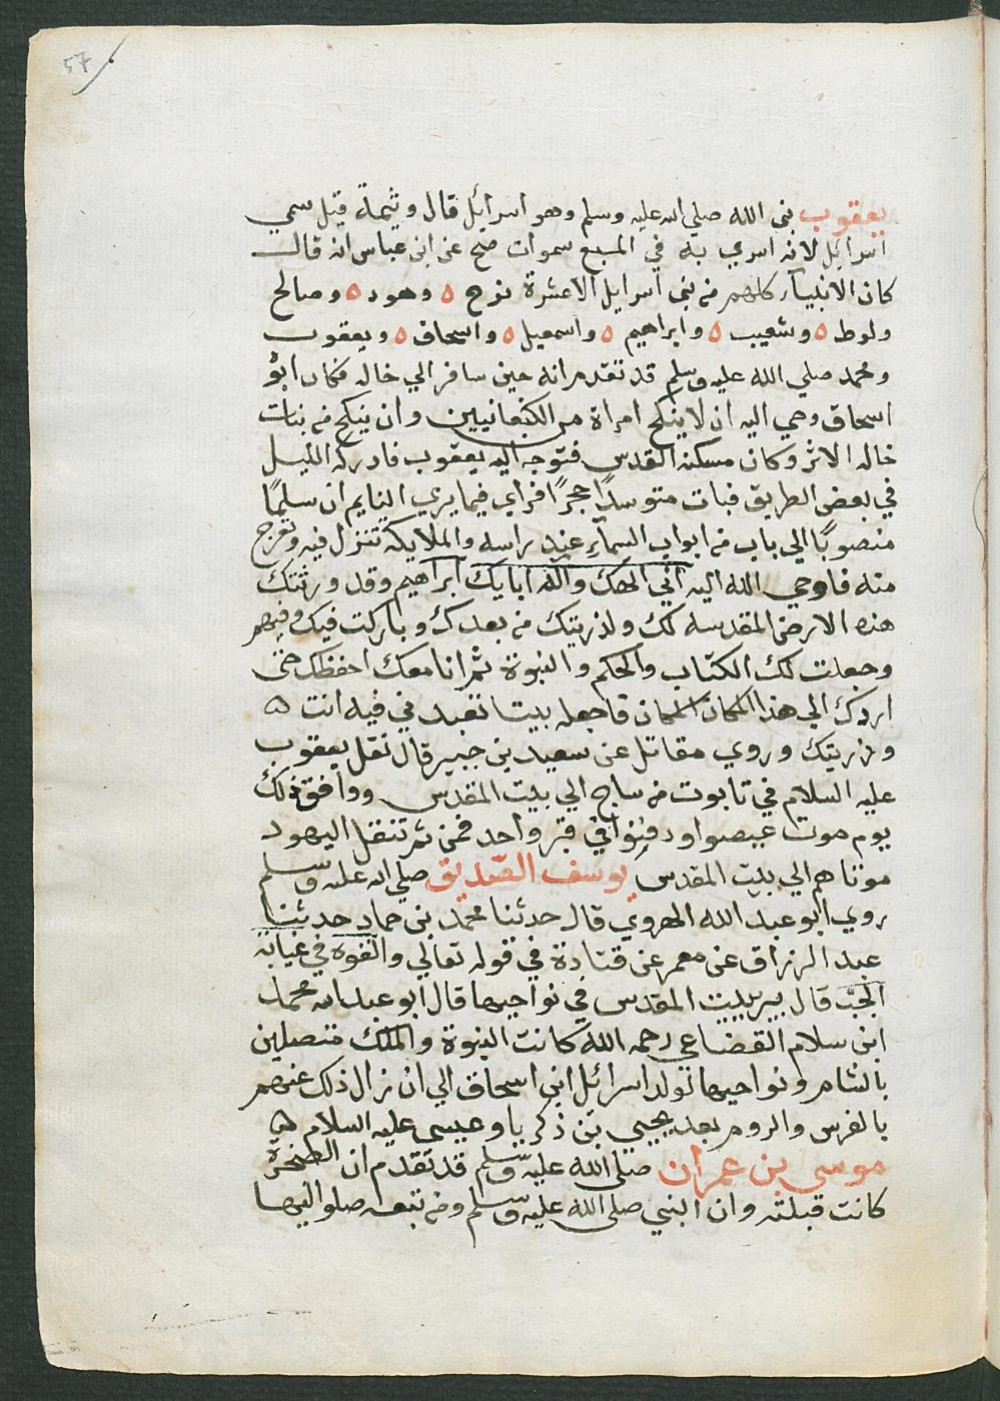 57
يعقوب نبي الله صلي الله عليه وسلم وهو اسرائيل قال وثيمة قيل سمي
اسرائيل لانه اسري به في السبع سموات صح عن ابن عباس انه قال
كان الانبيآء كلهم من بني اسرايل الا عشرة نوح ه وهود ه وصالح
ولوط ه وشعيب ه وابراهيم ه واسمعيل ه واسحاق ه ويعقوب
ومحمد صلي الله عليه وسلم قد تقدم انه حين سافر الي خاله فكان ابوْ
اسحاق وصي اليه ان لا ينكح امراة من الكنعانيين وان ينكح من بنات
خاله الاثر وكان مسكنه القدس فتوجه اليه يعقوب فادركه الليل
في بعض الطريق فبات متوسدًا حجرًا فراي فيما يري النايم ان سلمًا
منصوبًا الي باب من ابواب السمآءِ عند راسه والملايكة تنزل فيه وتعرج
منه فاوحي الله اليه اني الهك واله ابايك ابراهيم وقد ورثتك
هذه الارض المقدسه لك ولذريتك من بعدك وباركت فيك وفيهم
وجعلت لك الكتاب والحكم والنبوة ثم انا معك احفظك حتى
اردك الي هذا المكان المكان فاجعله بيتا تعبدني فيه انت ه
وذريتك وروي مقاتل عن سعيد بن جبير قال نقل يعقوب
عليه السلام في تابوت من ساج الي بيت المقدس ووافق ذلك
يوم موت عيصوا ودفنوا في قبر واحد فمن ثم تنقل اليهود
موتاهم الي بيت المقدس يوسف الصديق صلي الله عليه وسلم
روي ابو عبد الله الهروي قال حدثنا محمد بن حماد حدثنا
عبد الرزاق عن معمر عن قتادة في قوله تعالي والقوه في غيابة
الجبّ قال بير ببيت المقدس في نواحيها قال ابو عبد الله محمد
ابن سلام القضاعي رحمه الله كانت النبوة والملك متصلين
بالشام ونواحيها لولد اسرائيل ابن اسحاق الي ان زال ذلك عنهم
بالفرس والروم بعد يحيي بن ذكريا وعيسي عليه السلام ه
موسي بن عمران صلي الله عليه وسلم قد تقدم ان الصخرة
كانت قبلته وان النبي صلي الله عليه وسلم ومن تبعه صلو اليها